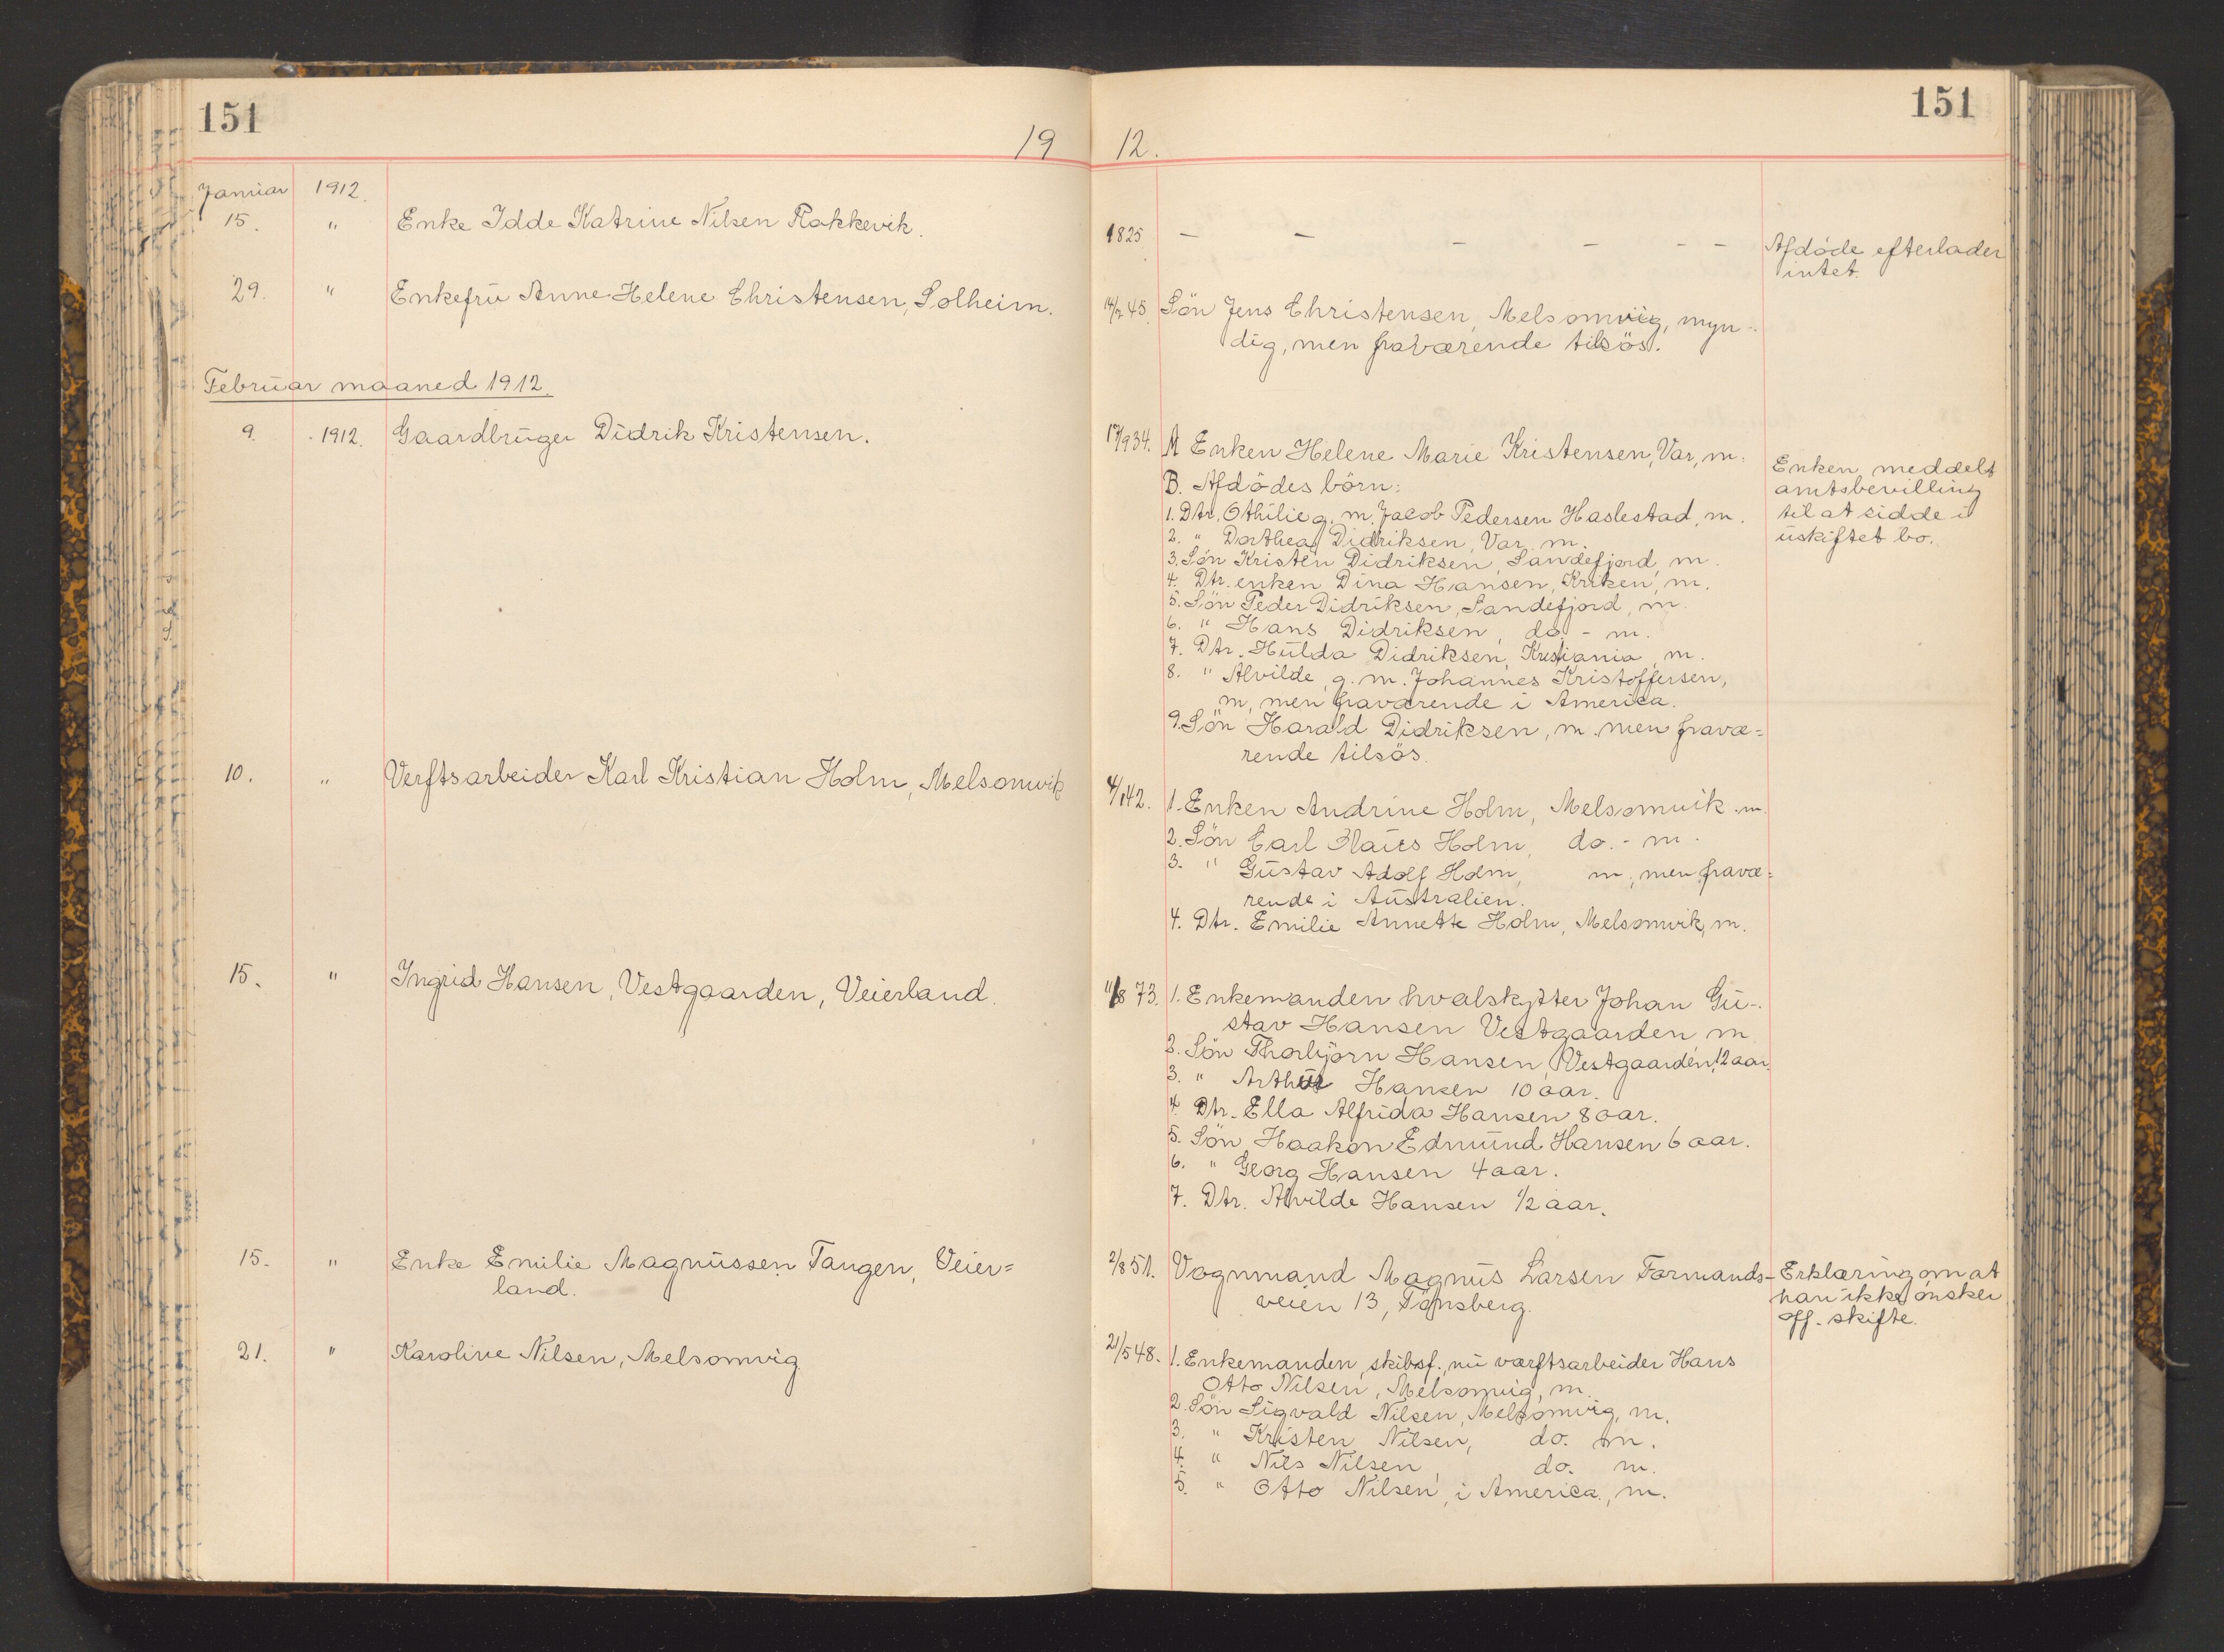 151
151
19 12.
Januar 1912.
15. " Enke Idde Katrine Nilsen Rakkevik. 1825 — — — — — — Afdöde efterlader
intet.
29. " Enkefrü Anne Helene Christensen, Solheim. 14/7 45. Sön Jens Christensen, Melsomvig, myn-
dig, men fraværende tilsös.
Februar maaned 1912.
9. 1912. Gaardbrüger Didrik Kristensen. 17/9 34. A Enken Helene Marie Kristensen, Var, m.
B. Afdödes börn:
1. Dtr. Othilie g. m. Jacob Pedersen Haslestad, m.
2. " Dorthea Didriksen, Var, m.
3. Sön Kristen Didriksen, Sandefjord, m.
4. Dtr. enken Dina Hansen, Kriken, m.
5. Sön Peder Didriksen, Sandefjord, m.
6. " Hans Didriksen, do - m.
7. Dtr. Hülda Didriksen, Kristiania, m.
8. " Alvilde, g. m. Johannes Kristoffersen,
m, men fraværende i America.
9. Sön Harald Didriksen, m. men fravæ=
rende tilsös.
Enken meddelt
amtsbevilling
til at sidde i
üskiftet bo.
10. " Verftsarbeider Karl Kristian Holm, Melsomvik 4/1 42. 1. Enken Andrine Holm, Melsomvik m.
2. Sön Carl Claües Holm, do. - m.
3. " Güstav Adolf Holm, m, men fravæ=
rende i Aüstralien.
4. Dtr. Emilie Annette Holm, Melsomvik, m.
15. " Ingrid Hansen, Vestgaarden, Veierland. 11/8 73. 1. Enkemanden hvalskytter Johan Gü-
stav Hansen Vestgaarden m
2. Sön Thorbjörn Hansen, Vestgaarden, 12 aar.
3. " Arthür Hansen 10 aar.
4. Dtr. Ella Alfrida Hansen 8 aar.
5. Sön Haakon Edmünd Hansen 6 aar.
6. " Georg Hansen 4 aar.
7. Dtr. Alvilde Hansen 1/2 aar.
15. " Enke Emilie Magnüssen Tangen, Veier=
land.
2/8 51. Vognmand Magnüs Larsen Formands-
veien 13, Tönsberg.
Erklæring om at
han ikke önsker
off. skifte.
21. " Karoline Nilsen, Melsomvig 21/5 48. 1. Enkemanden, skibsf., nü værftsarbeider Hans
Otto Nilsen, Melsomvig, m.
2. Sön Sigvald Nilsen, Melsomvig, m.
3. " Kristen Nilsen, do. m.
4. " Nils Nilsen, do. m.
5. " Otto Nilsen, i America, m.